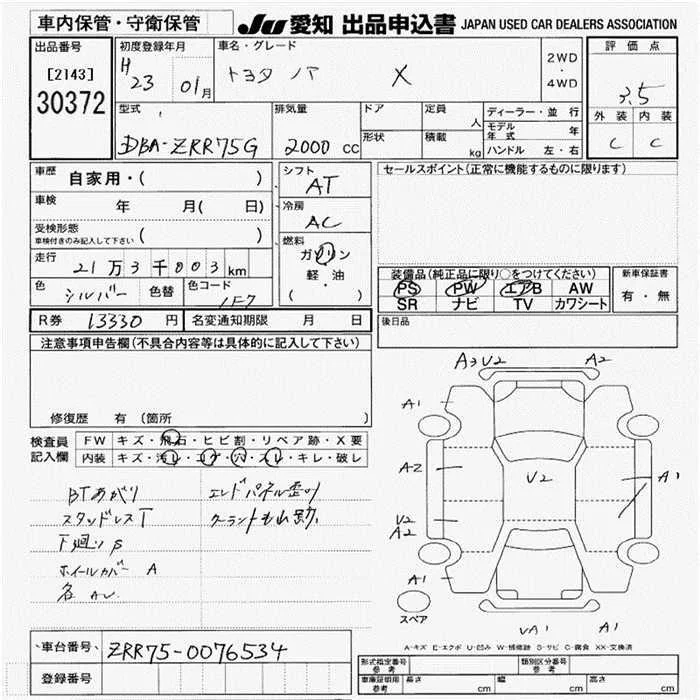 車内保管・守衛保管
JU 愛知 出品申込書 JAPAN USED CAR DEALERS ASSOCIATION
出品番号
[2143]
30372
初度登録年月
H 23 01月
車名・グレード
トヨタ ノア X
2WD
・
4WD
評価点
3.5
外装 内装
C C
型式
DBA-ZRR75G
排気量
2000 cc
ドア
形状
定員 人
積載 kg
ディーラー・並行
モデル年式 年
ハンドル 左・右
車歴
自家用・( )
車検 年 月( 日)
受検形態
車検付きのみ記入して下さい ( )
走行
21万3千003km
色 シルバー 色替 色コード 1F7
シフト
AT
冷房
AC
燃料
ガソリン
軽・油
( ・ )
セールスポイント(正常に機能するものに限ります)
装備品(純正品に限り○をつけてください)
PS PW エアB AW
SR ナビ TV カワシート
新車保証書
有・無
R券 13330 円 名変通知期限 月 日
後日品
注意事項申告欄(不具合内容等は具体的に記入して下さい)
修復歴 有 (箇所 )
検査員記入欄
FW キズ・飛石・ヒビ割・リペア跡・X要
内装 キズ・汚レ・コゲ・穴・スレ・キレ・破レ
BTあがり エンドパネル歪り
スタッドレスT クーラントもれ跡
下廻りS
ホイールカバー A
各 AU
A3 V2 A2
A1
A2
V2
A1
V2
A2
A1
スペア
VA1 A1
A-キズ E-エクボ U-凹み W-補修跡 S-サビ C-腐食 XX-交換済
車台番号 ZRR75-0076534
登録番号
形式指定番号 参考 類別区分番号 参考
車庫証明用 参考 長さ cm 幅 cm 高さ cm